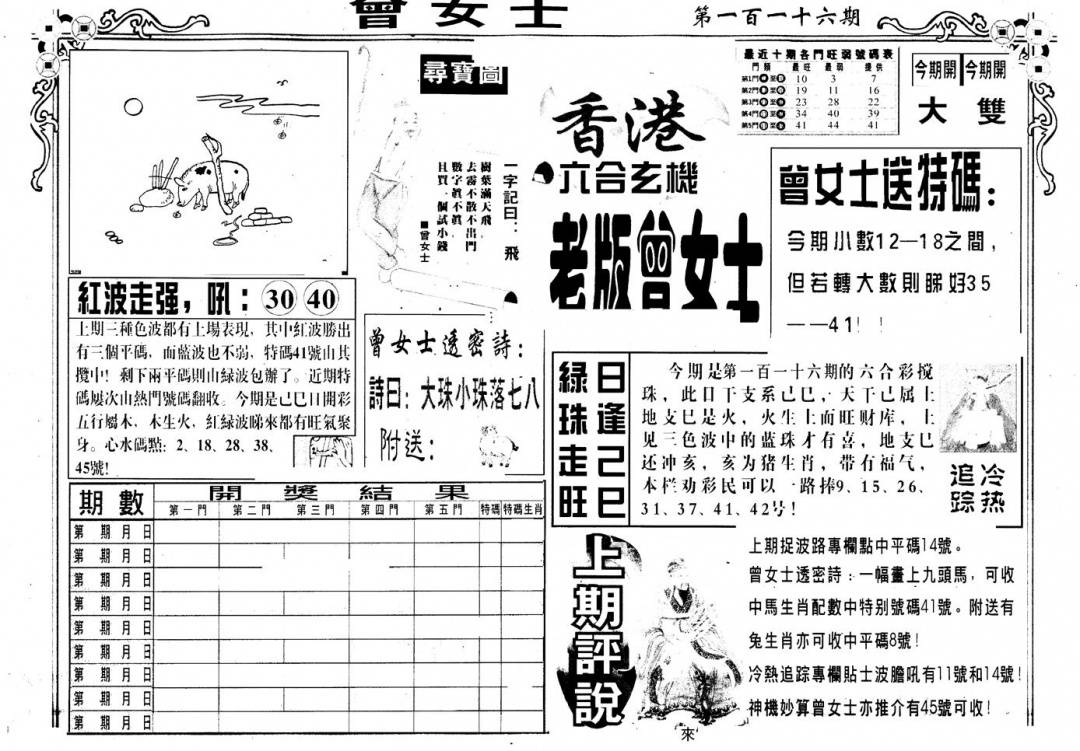 曾女士
第一百一十六期
尋寶圖
一字記曰：飛
樹葉滿天飛，
去霧不散不出門
數字真不真，
且買一個試小錢
■曾女士
最近十期各門旺弱號碼表
門類 最旺 最弱 提供
第1門 10 3 7
第2門 19 11 16
第3門 23 28 22
第4門 34 40 39
第5門 41 44 41
今期開 今期開
大 雙
香港
六合玄機
老版曾女士
曾女士送特碼：
今期小數12—18之間，
但若轉大數則睇好35
——41！！
紅波走强，吼：30 40
上期三種色波都有上場表現，其中紅波勝出
有三個平碼，而藍波也不弱，特碼41號由其
攬中！剩下兩平碼則由緑波包辦了。近期特
碼屢次由熱門號碼翻收。今期是己巳日開彩
五行屬木，木生火，紅緑波睇來都有旺氣聚
身。心水碼點：2、18、28、38、
45號！
曾女士透密詩：
詩曰：大珠小珠落七八
附送：
緑珠走旺
日逢己巳
今期是第一百一十六期的六合彩搅
珠，此日干支系己巳，天干己属土
地支巳是火，火生土而旺财库，土
见三色波中的蓝珠才有喜，地支巳
还冲亥，亥为猪生肖，带有福气，
本栏劝彩民可以一路捧9、15、26、
31、37、41、42号！
冷热
追踪
期數 開獎結果
第一門 第二門 第三門 第四門 第五門 特碼 特碼生肖
第 期 月 日
第 期 月 日
第 期 月 日
第 期 月 日
第 期 月 日
第 期 月 日
第 期 月 日
第 期 月 日
第 期 月 日
上期評說
上期捉波路專欄點中平碼14號。
曾女士透密詩：一幅畫上九頭馬，可收
中馬生肖配數中特别號碼41號。附送有
兔生肖亦可收中平碼8號！
冷熱追踪專欄貼士波膽吼有11號和14號！
神機妙算曾女士亦推介有45號可收！
來